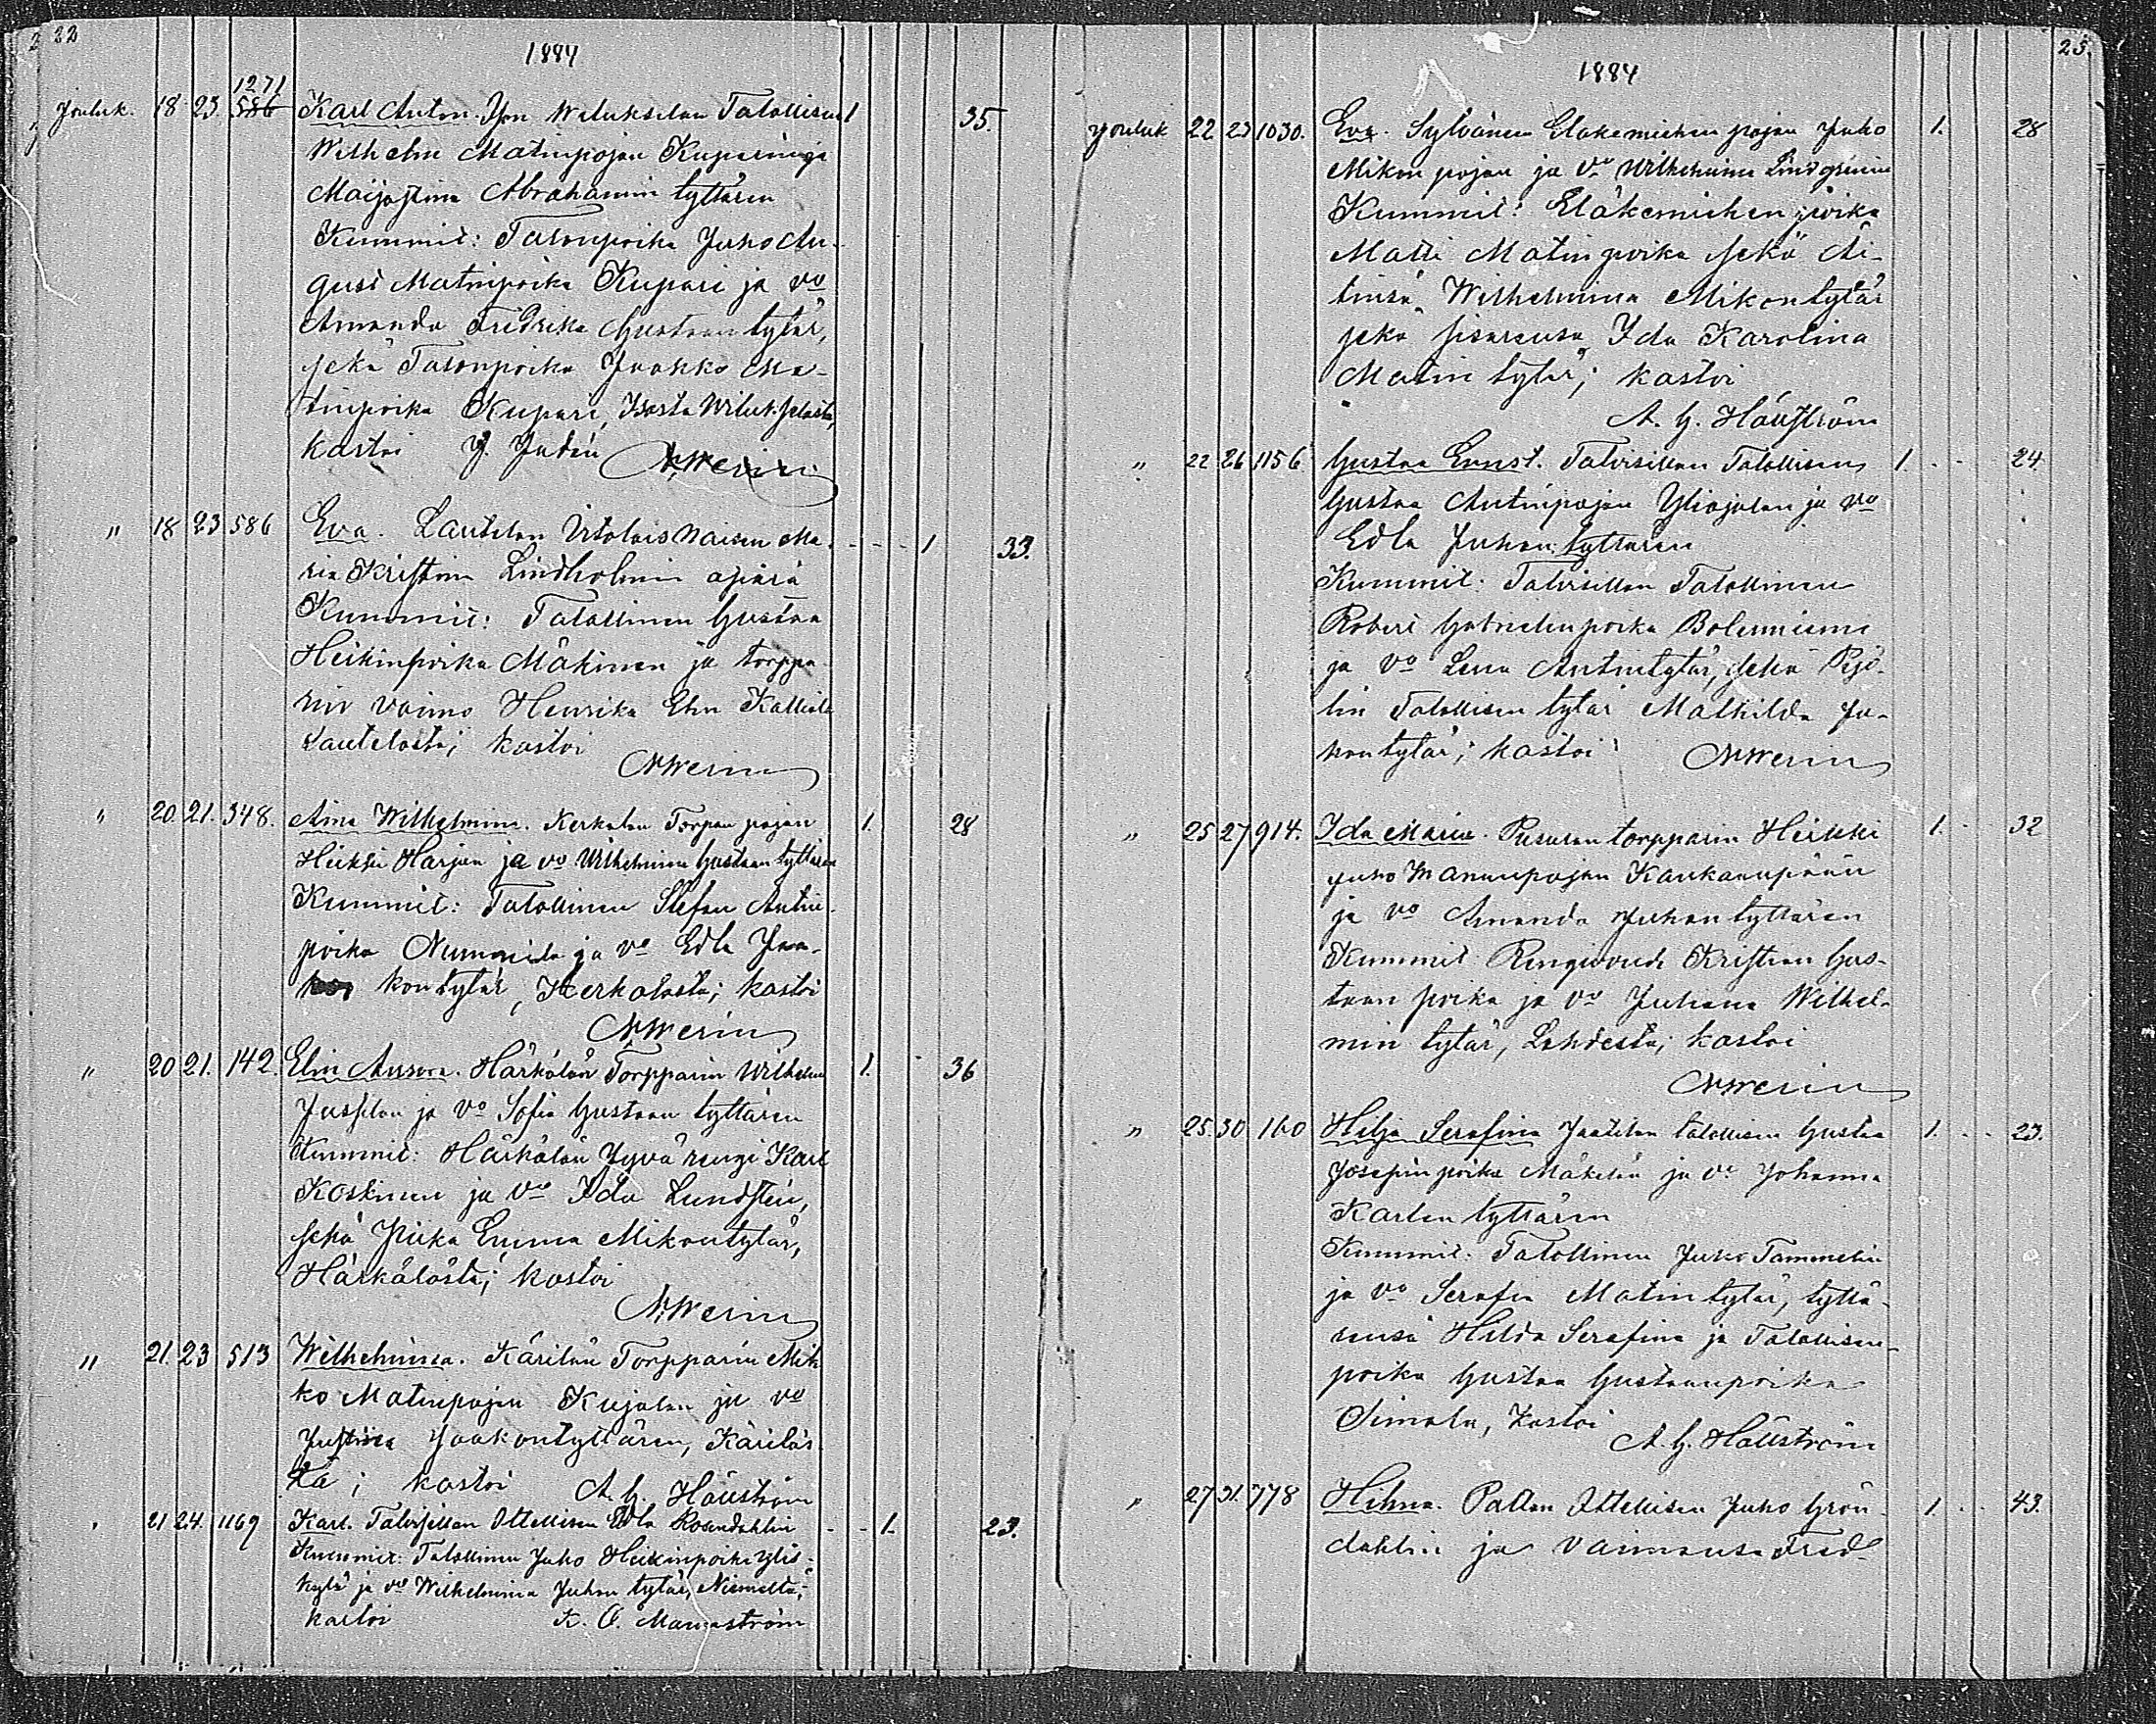 22
1884
1271
Jouluk. 18 23 586 Karl Anton. Ison Wiluksilan Talollisen 1 35.
Wilhelm Matinpojan Kuparin ja
Maijastiina Abrahamin tyttären
Kummit: Talonpoika Juho Au-
gust Matinpoika Kupari ja vo
Amanda Fredrika Gustaan tytär,
sekä Talonpoika Jaakko Ma-
tinpoika Kupari, Isosta Wilukselasta,
kastoi J. Judin
" 18 23 586 Eva. Lautelan Itolais Naisen Ma- 1 33.
ria Kristina Lindholmin äpärä
Kummit: Talollinen Gustaa
Heikinpoika Mäkinen ja torppa-
rin vaimo Henrika Elin Kalliola
Lautelasta; kastoi
" 20 21. 348. Aina Wilhelmina. Kerkolan Torpan pojan 1. 28
Heikki Harjun ja vo Wilhelmina Gustaan tyttären
Kummit: Talollinen Stefan Antin-
poika Nummila ja vo Edla Jaa-
kontytär, Kerkolasta; kastoi
" 20 21. 142. Elin Aurora. Härkälän Torpparin Wilhelm 1. 36
Jussilan ja vo Sofia Gustaan tyttären
Kummit: Härkälän Hyvä rengi Karl
Koskinen ja vo Ida Lundsten,
sekä Piika Emma Mikontytär,
Härkälästä; kastoi
" 21. 23 513 Wilhelmina. Kärilän Torpparin Mik-
ko Matinpojan Kujalan ja vo
Justina Jaakontyttären, Käriläs-
tä; kastoi A. G. Hällström
" 21 24. 1169 Karl. Talvisillan Ottellisen Edla Rosendahlin 1. 23.
Kummit: Talollinen Juho Heikinpoika Ylis-
kylä ja vo Wilhelmina Juhon tytär, Niemeltä;
kastoi K. O. Mannström
23.
1884
Jouluk 22 23 1030. Eva. Sylvänen Eläkemiehen pojan Juho 1. 28
Mikon pojan ja vo Wilhelmina Lindgrenin
Kummit: Eläkemiehen poika
Matti Matinpoika sekä Äi-
tinsä Wilhelmina Mikontytär
sekä sisarensa Ida Karolina
Matin tytär; kastoi
A. G. Hällström
" 22 26 1156 Gustaa Ernst. Talvisillan Talollisen 1. 24
Gustaa Antinpojan Yliojalan ja vo
Edla Juhan tyttären
Kummit: Talvisillan Talollinen
Robert Gabrielinpoika
ja vo Lena Antintytär, sekä
lin Talollisen tytär Mathilda Ja-
kontytär; kastoi
" 25 27 914. Ida Maria. Pusulan torpparin Heikki 1. 32
Juho Mananpojan Kaukaanpään
ja vo Amanda Juhan tyttären
Kummit Kristian Gus-
taan poika ja vo Juliana Wilhel-
min tytär, Lahdesta; kastoi
" 25. 30. 160 Hilja Serafina Jaatilan talollisen Gustaa 1. 23.
Josepin poika Mäkelän ja vo Johanna
Karlen tyttären
Kummit: Talollinen Juho Tammelin
ja vo Serafia Matin tytär, tyttä-
rensä Hilda Serafina ja Talollisen-
poika Gustaa Gustaanpoika
Simola, kastoi
A. G. Hällström
" 27 31. 778 Hilma. Pallan Ottellisen Juho Grön- 1. 43.
dahlin ja vaimonsa Fred-